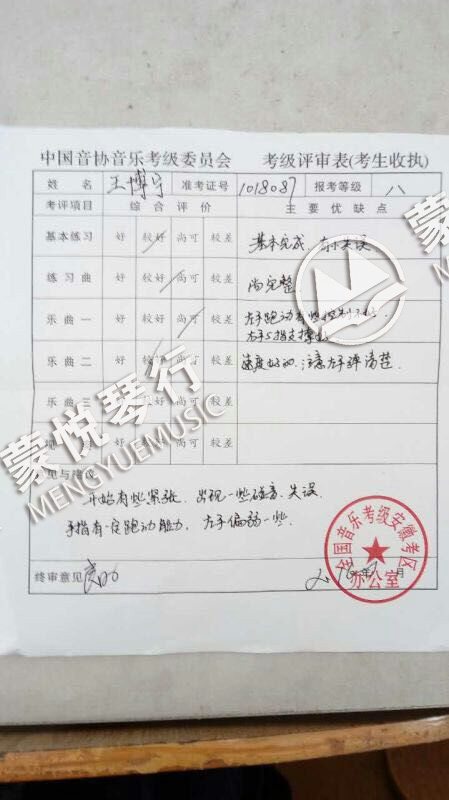 中国音协音乐考级委员会 考级评审表(考生收执)
姓名 王博宇 准考证号 1018087 报考等级 八
考评项目 综合评价 主要优缺点
基本练习 好 较好 尚可 较差 基本完成，有小失误
练习曲 好 较好 尚可 较差 尚完整
乐曲一 好 较好 尚可 较差 左手跑动有些控制不好，
左手5指支撑
乐曲二 好 较好 尚可 较差 速度 注意左手弹清楚.
乐曲三 好 较好 尚可 较差
好 较好 尚可 较差
见与建议
开始有些紧张. 出现一些碰音、失误
手指有一定跑动能力, 左手偏弱一些.
终审意见
年 月
全国音乐考级安徽考区
办公室
蒙悦琴行
MENGYUEMUSIC
蒙悦琴行
MENGYUEMUSIC